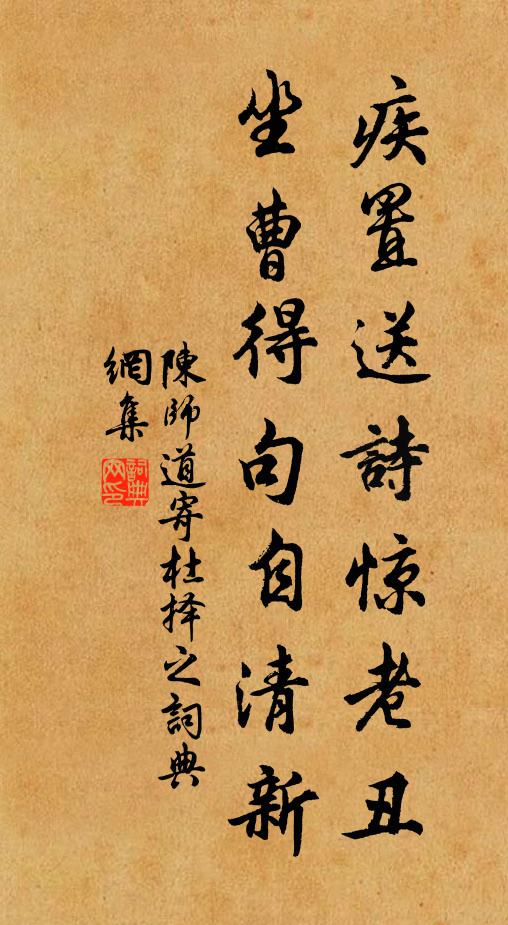 疾置送詩惊老丑
坐曹得句自清新
陳師道寄杜择之詞典
網集
詞典
网印